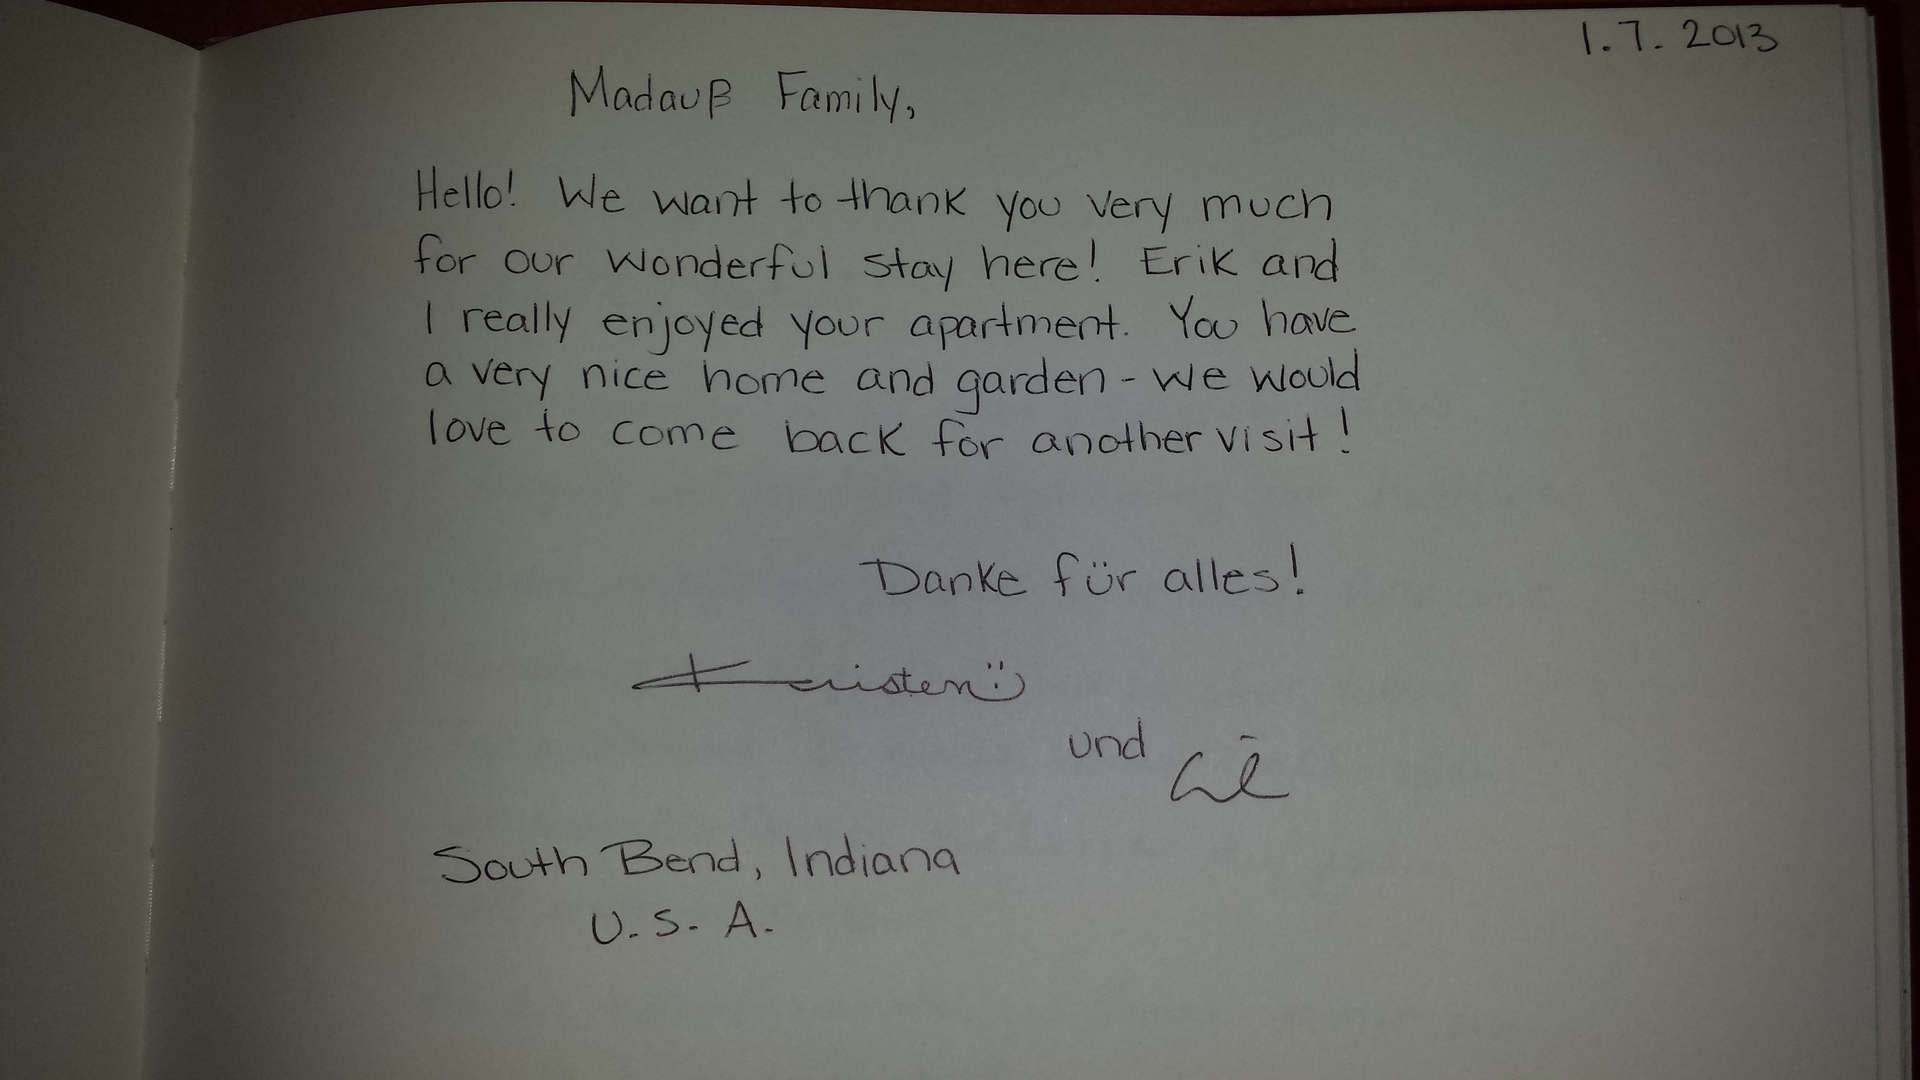 1.7.2013
Madauß Family,
Hello! We want to thank you very much
for our wonderful stay here! Erik and
I really enjoyed your apartment. You have
a very nice home and garden - we would
love to come back for another visit!
Danke für alles!
Kristen :)
und
South Bend, Indiana
U.S.A.